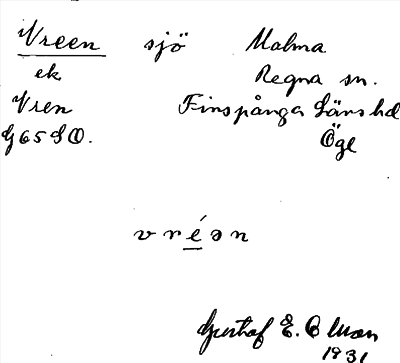 Vreen sjö Malma
ek Regna sn.
Vren Finspånga läns hd
G65SO. Ögl
vréən
Gustaf E. Olsson
1931